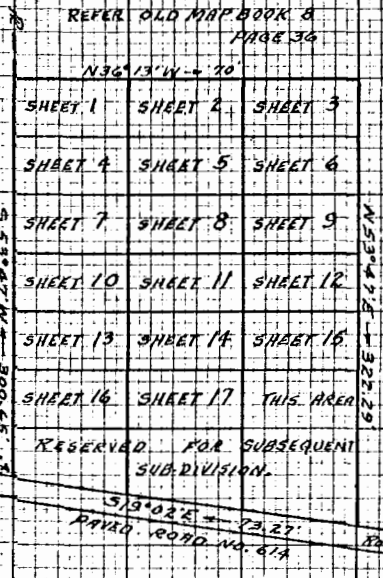 REFER OLD MAP BOOK 8
PAGE 36
N36°13'W - 70'
SHEET 1 SHEET 2 SHEET 3
SHEET 4 SHEET 5 SHEET 6
SHEET 7 SHEET 8 SHEET 9
SHEET 10 SHEET 11 SHEET 12
SHEET 13 SHEET 14 SHEET 15
SHEET 16 SHEET 17 THIS AREA
RESERVED FOR SUBSEQUENT
SUB-DIVISION.
S 53°47'W - 300.65'
N53°47'E - 322.29
S19°02'E - 73.27'
PAVED ROAD NO. 614